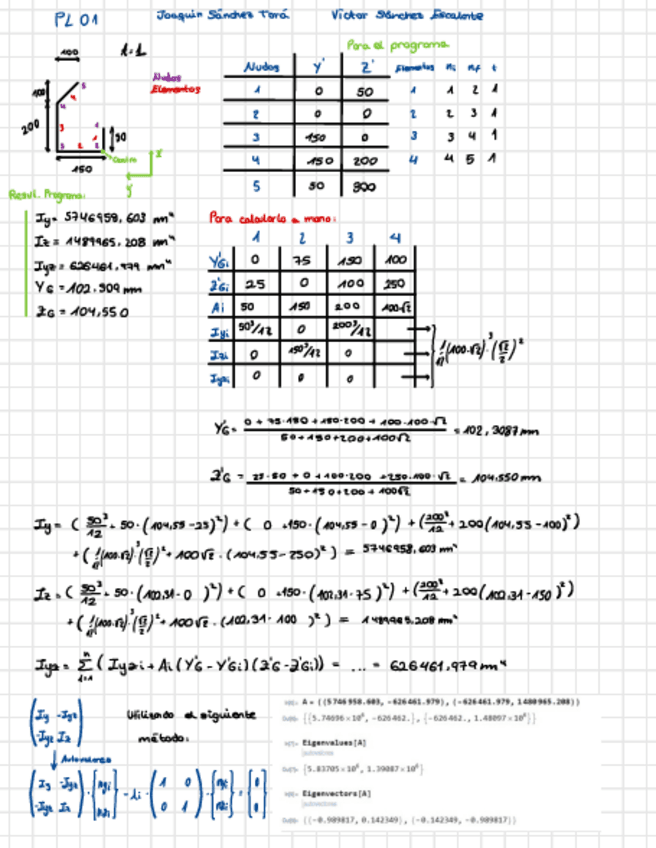 PL 01 Joaquín Sánchez Tará Víctor Sánchez Escalante
100 t=1
Para el programa
Nudos
Elementos
100
200
50
150
Centro
z'
y'
Nudos Y' Z' Elementos ni nf t
1 0 50 1 1 2 1
2 0 0 2 2 3 1
3 150 0 3 3 4 1
4 150 200 4 4 5 1
5 50 300
Result. Programa:
Iy= 5746959,603 mm⁴
Iz= 1489965,208 mm⁴
Iyz= 626461,979 mm⁴
YG=102,309mm
ZG= 104,550
Para calcularlo a mano:
1 2 3 4
Y'Gi 0 75 150 100
Z'Gi 25 0 100 250
Ai 50 150 200 100√2
Iyi 50³/12 0 200³/12
Izi 0 150³/12 0
Iyzi 0 0 0
1/12(100·√2)³·(√2/2)²
Y'G= (0 + 75·150 +150·200 + 100·100√2)/(50+150+200+100√2) = 102,3087mm
Z'G = (25·50 + 0 +100·200 +250·100·√2)/(50+150+200+100√2) = 104,550mm
Iy = ( 50³/12 + 50·(104,55-25)²) + ( 0 +150·(104,55-0)²) + (200³/12 + 200(104,55-100)²)
+ ( 1/12(100·√2)³(√2/2)² + 100√2 · (104,55-250)² ) = 5746958,603 mm⁴
Iz = ( 50³/12 + 50·(102,31-0 )²) + ( 0 +150·(102,31-75 )²) + (200³/12 + 200(102,31-150)²)
+ ( 1/12(100·√2)³(√2/2)² + 100√2 · (102,31-100 )² ) = 1489965,208 mm⁴
Iyz = Σ ( Iyzi + Ai (Y'G - Y'Gi)(Z'G - Z'Gi)) = ... = 626461,979 mm⁴
(Iy -Iyz
-Iyz Iz) Utilizando el siguiente
método:
Autovalores
(Iy -Iyz
-Iyz Iz) · {n1i
n2i} - λi · (1 0
0 1) · {n1i
n2i} = {0
0}
A = ((5746958.603, -626461.979), (-626461.979, 1480965.208))
{{5.74696×10⁶, -626462.}, {-626462., 1.48097×10⁶}}
Eigenvalues[A]
{5.83705×10⁶, 1.39087×10⁶}
Eigenvectors[A]
{{-0.989817, 0.142349}, {-0.142349, -0.989817}}